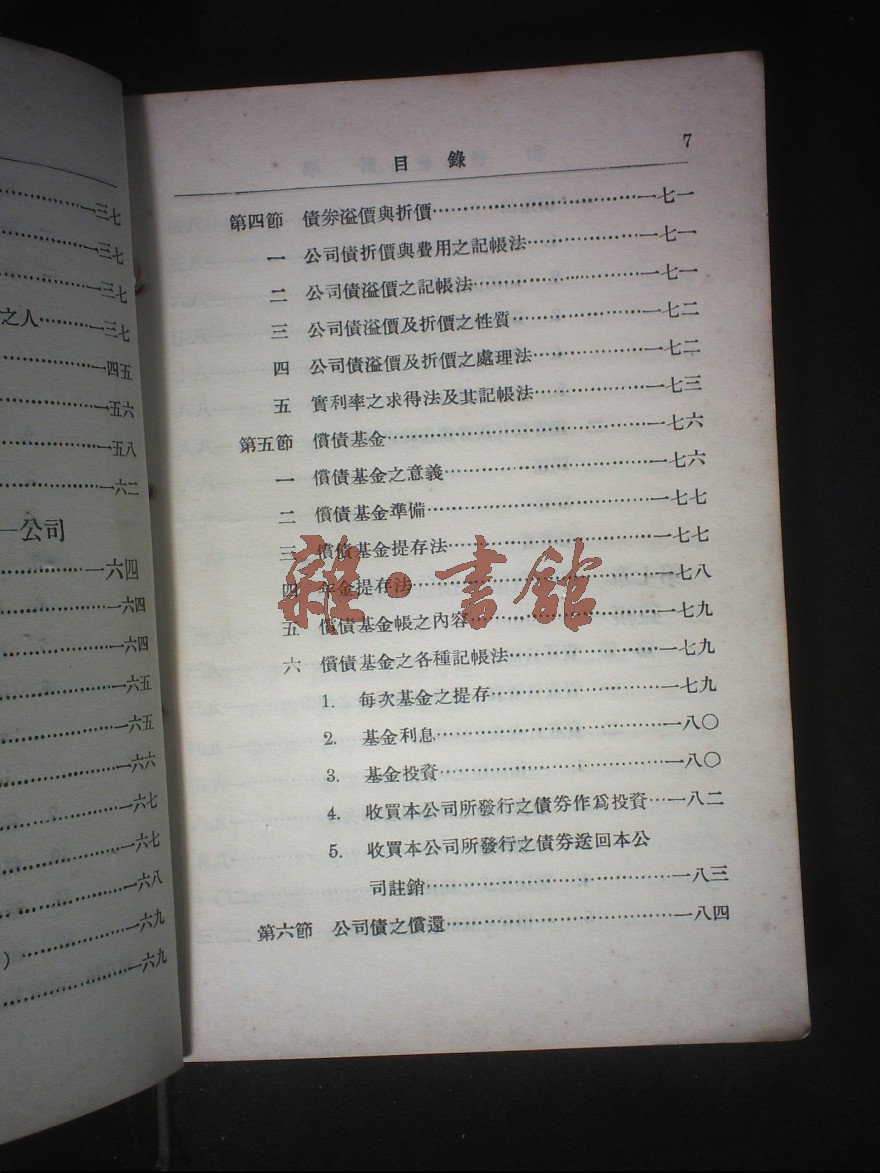 一三七
一三七
一三七
之人………一三七
一四五
一五六
一五八
一六二
—公司
一六四
一六四
一六四
一六五
一六五
一六六
一六七
一六七
一六八
一六九
）
一六九
目 錄 7
第四節 債券溢價與折價………一七一
一 公司債折價與費用之記帳法………一七一
二 公司債溢價之記帳法………一七一
三 公司債溢價及折價之性質………一七二
四 公司債溢價及折價之處理法………一七二
五 實利率之求得法及其記帳法………一七三
第五節 償債基金………一七六
一 償債基金之意義………一七六
二 償債基金準備………一七七
三 償債基金提存法………一七七
四 年金提存法………一七八
五 償債基金帳之內容………一七九
六 償債基金之各種記帳法………一七九
1. 每次基金之提存………一七九
2. 基金利息………一八〇
3. 基金投資………一八〇
4. 收買本公司所發行之債券作爲投資…一八二
5. 收買本公司所發行之債券送回本公
司註銷………一八三
第六節 公司債之償還………一八四
雜·書館